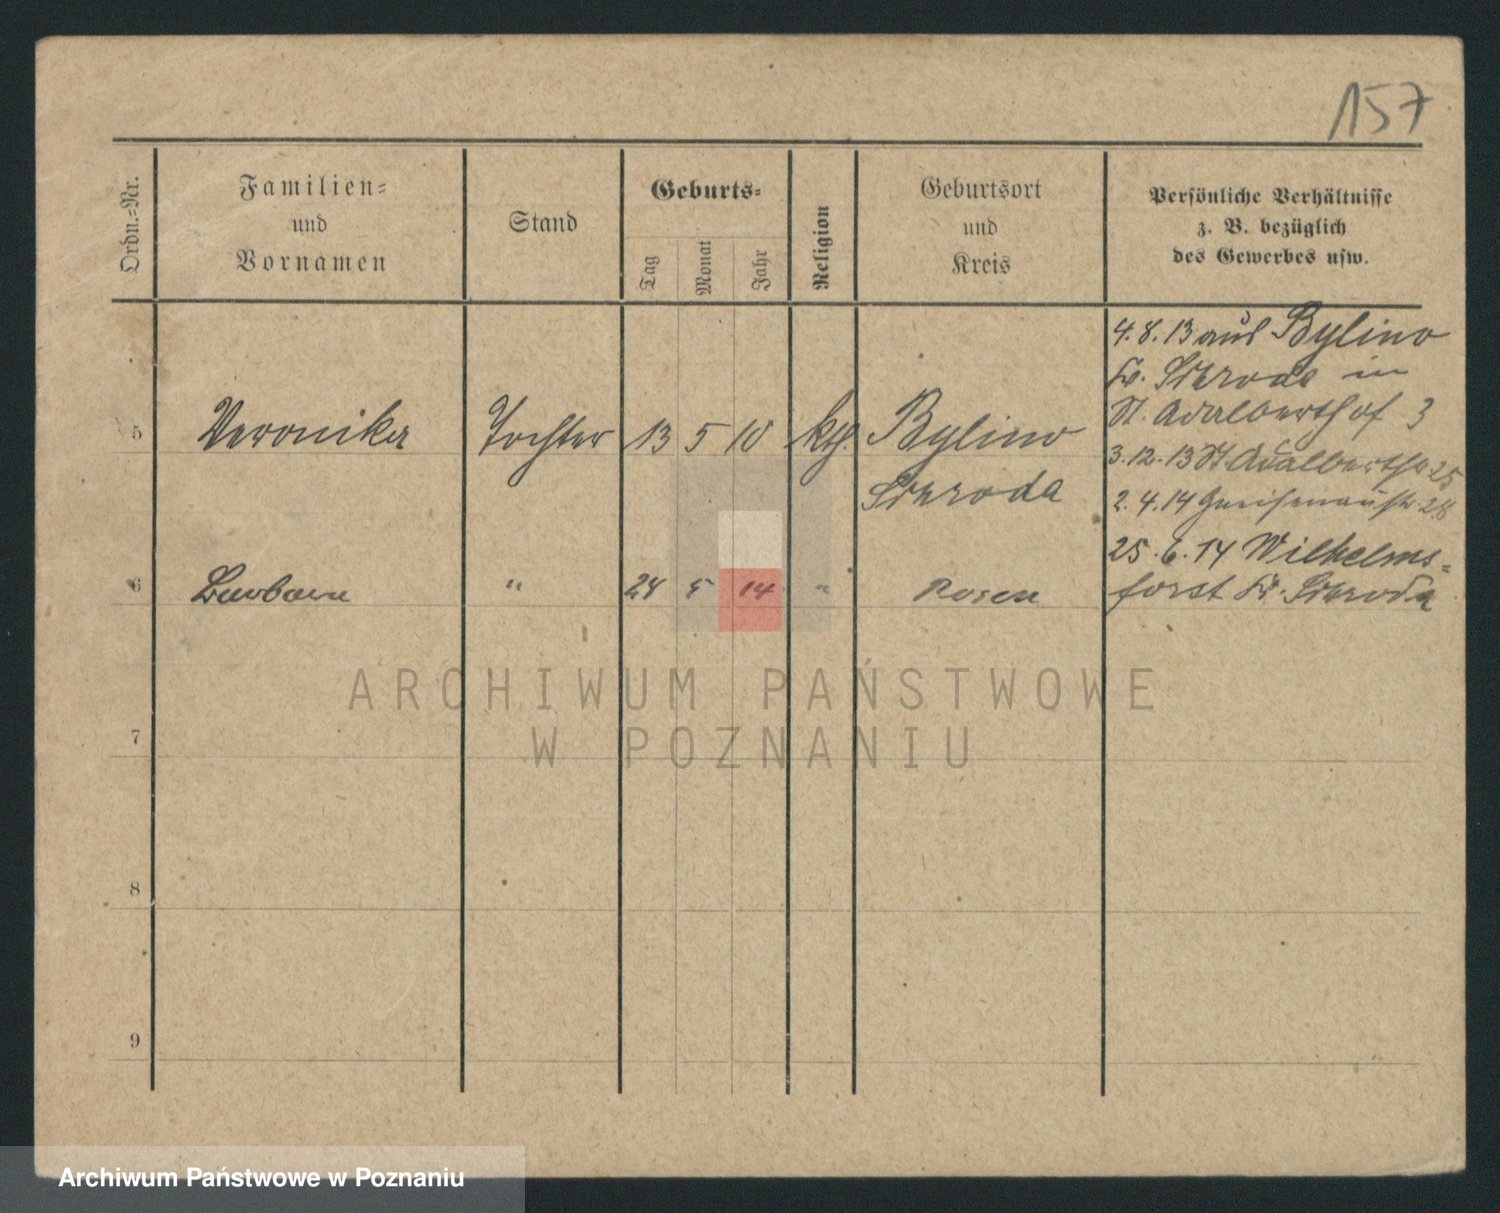 157
Ordn.=Nr.
Familien=
und
Vornamen
Stand
Geburts=
Tag
Monat
Jahr
Religion
Geburtsort
und
Kreis
Persönliche Verhältnisse
z. B. bezüglich
des Gewerbes usw.
4.8.13 aus Bylino
Kr. Schroda in
St. Adalberthof 3
5 Veronika Tochter 13 5 10 kth. Bylino
3.12.13 St Adalbertstr 25
Schroda
2.4.14 Gneisenaustr 28
25.6.14 Wilhelms=
6 Barbara " 24 5 14 " Posen
forst Kr. Schroda
ARCHIWUM PAŃSTWOWE
W POZNANIU
7
8
9
Archiwum Państwowe w Poznaniu